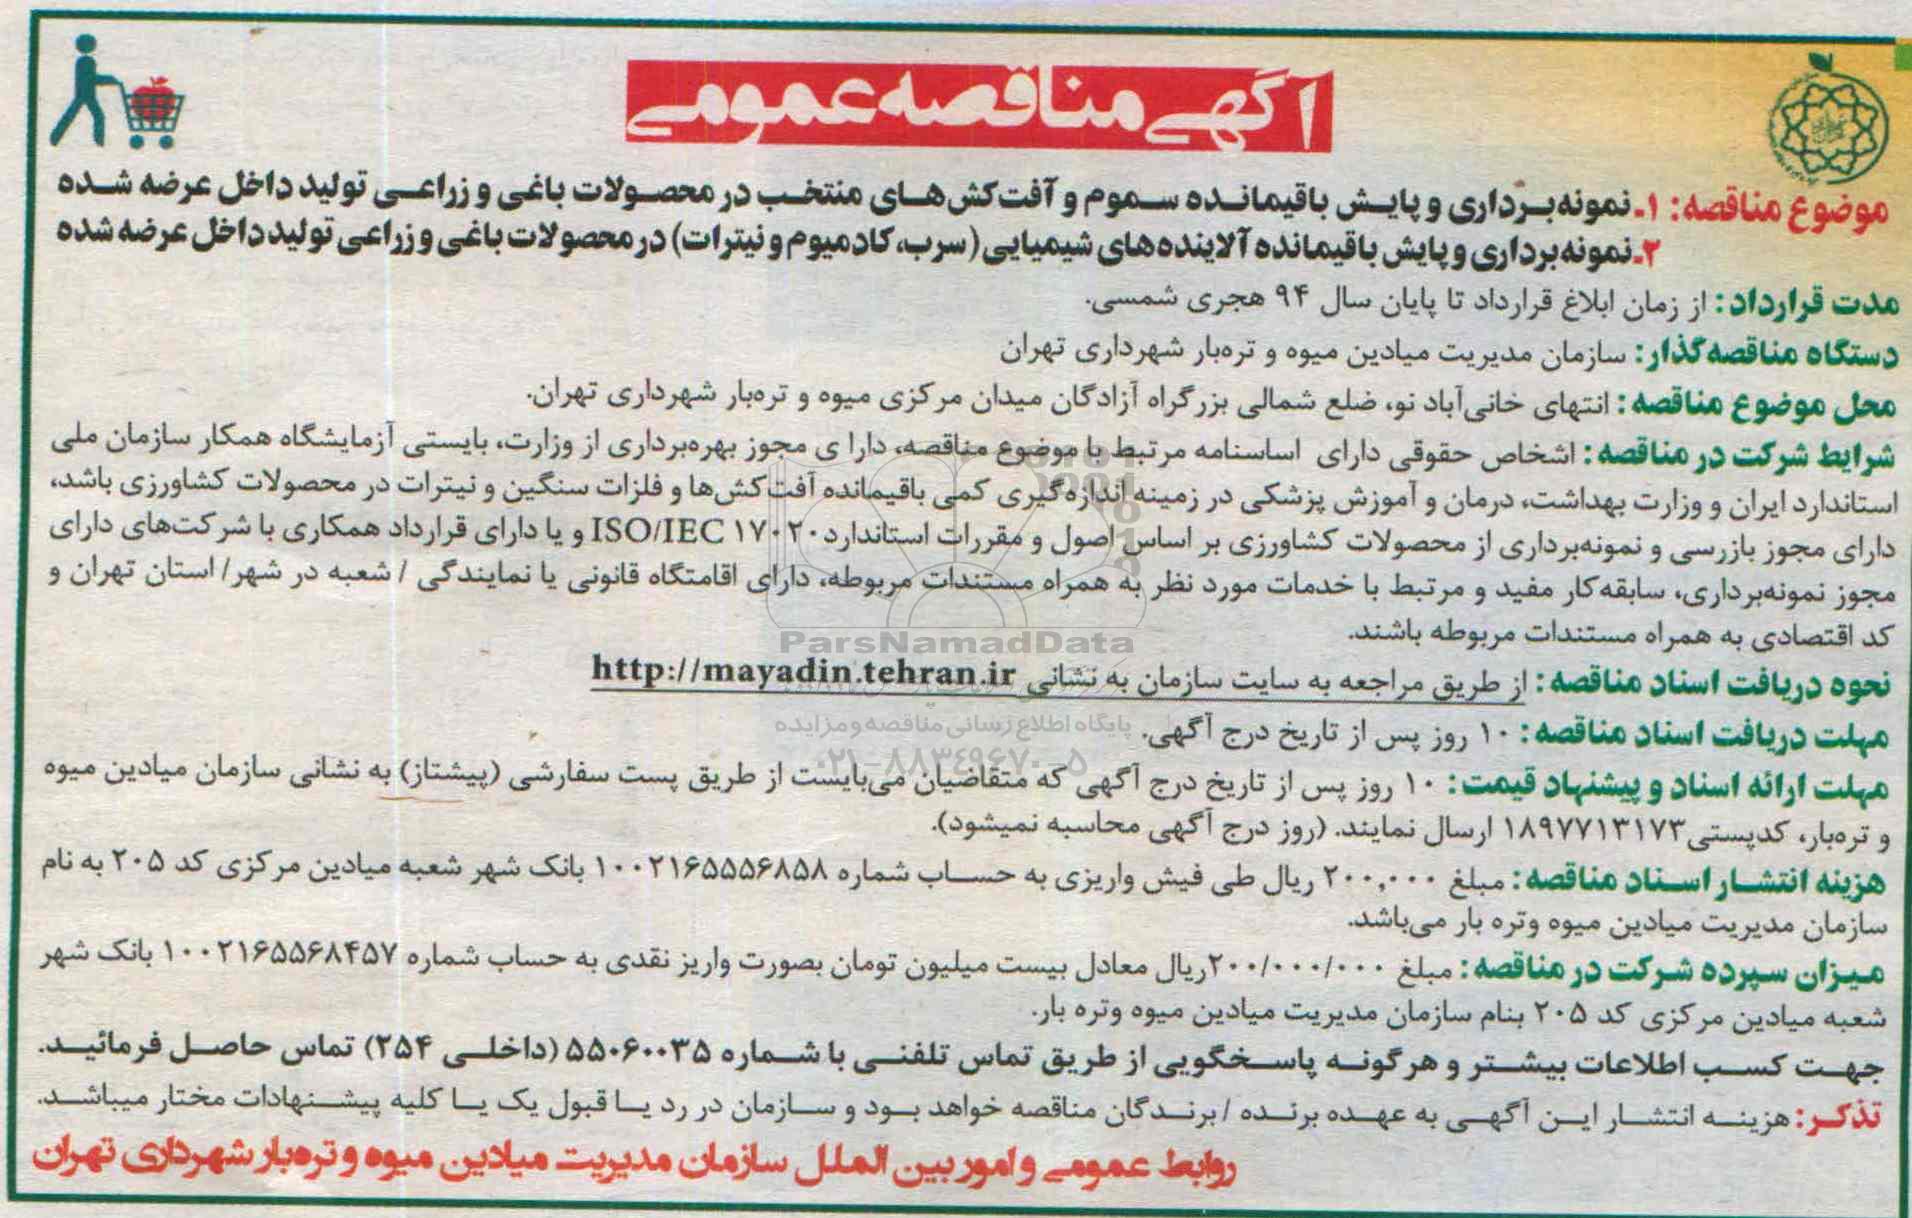 آگهی مناقصه عمومی
موضوع مناقصه: ۱ـ نمونه‌برداری و پایش باقیمانده سموم و آفت‌کش‌های منتخب در محصولات باغی و زراعی تولید داخل عرضه شده
۲ـ نمونه‌برداری و پایش باقیمانده آلاینده‌های شیمیایی (سرب، کادمیوم و نیترات) در محصولات باغی و زراعی تولید داخل عرضه شده
مدت قرارداد: از زمان ابلاغ قرارداد تا پایان سال ۹۴ هجری شمسی.
دستگاه مناقصه‌گذار: سازمان مدیریت میادین میوه و تره‌بار شهرداری تهران
محل موضوع مناقصه: انتهای خانی‌آباد نو، ضلع شمالی بزرگراه آزادگان میدان مرکزی میوه و تره‌بار شهرداری تهران.
شرایط شرکت در مناقصه: اشخاص حقوقی دارای اساسنامه مرتبط با موضوع مناقصه، دارا ی مجوز بهره‌برداری از وزارت، بایستی آزمایشگاه همکار سازمان ملی
استاندارد ایران و وزارت بهداشت، درمان و آموزش پزشکی در زمینه اندازه‌گیری کمی باقیمانده آفت‌کش‌ها و فلزات سنگین و نیترات در محصولات کشاورزی باشد،
دارای مجوز بازرسی و نمونه‌برداری از محصولات کشاورزی بر اساس اصول و مقررات استاندارد ISO/IEC ۱۷۰۲۰ و یا دارای قرارداد همکاری با شرکت‌های دارای
مجوز نمونه‌برداری، سابقه کار مفید و مرتبط با خدمات مورد نظر به همراه مستندات مربوطه، دارای اقامتگاه قانونی یا نمایندگی / شعبه در شهر/ استان تهران و
کد اقتصادی به همراه مستندات مربوطه باشند.
ParsNamadData
نحوه دریافت اسناد مناقصه: از طریق مراجعه به سایت سازمان به نشانی http://mayadin.tehran.ir
پایگاه اطلاع رسانی مناقصه و مزایده
مهلت دریافت اسناد مناقصه: ۱۰ روز پس از تاریخ درج آگهی.
۰۲۱-۸۸۳۴۹۶۷۰-۵
مهلت ارائه اسناد و پیشنهاد قیمت: ۱۰ روز پس از تاریخ درج آگهی که متقاضیان می‌بایست از طریق پست سفارشی (پیشتاز) به نشانی سازمان میادین میوه
و تره‌بار، کدپستی ۱۸۹۷۷۱۳۱۷۳ ارسال نمایند. (روز درج آگهی محاسبه نمیشود).
هزینه انتشار اسناد مناقصه: مبلغ ۲۰۰,۰۰۰ ریال طی فیش واریزی به حساب شماره ۱۰۰۲۱۶۵۵۵۶۸۵۸ بانک شهر شعبه میادین مرکزی کد ۲۰۵ به نام
سازمان مدیریت میادین میوه وتره بار می‌باشد.
میزان سپرده شرکت در مناقصه: مبلغ ۲۰۰/۰۰۰/۰۰۰ریال معادل بیست میلیون تومان بصورت واریز نقدی به حساب شماره ۱۰۰۲۱۶۵۵۶۸۴۵۷ بانک شهر
شعبه میادین مرکزی کد ۲۰۵ بنام سازمان مدیریت میادین میوه وتره بار.
جهت کسب اطلاعات بیشتر و هرگونه پاسخگویی از طریق تماس تلفنی با شماره ۵۵۰۶۰۰۳۵ (داخلی ۲۵۴) تماس حاصل فرمائید.
تذکر: هزینه انتشار این آگهی به عهده برنده / برندگان مناقصه خواهد بود و سازمان در رد یا قبول یک یا کلیه پیشنهادات مختار میباشد.
روابط عمومی و امور بین الملل سازمان مدیریت میادین میوه و تره‌بار شهرداری تهران